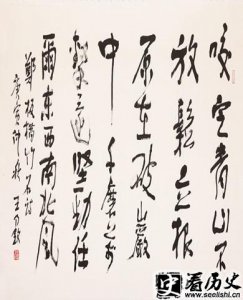 咬定青山不
放鬆立根
原在破巖
中千磨萬
擊還堅勁任
爾東西南北風
鄭板橋竹石詩
庚寅仲秋 王
看历史